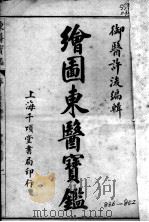 御醫許浚編輯
繪圖東醫寶鑑
上海千頃堂書局印行